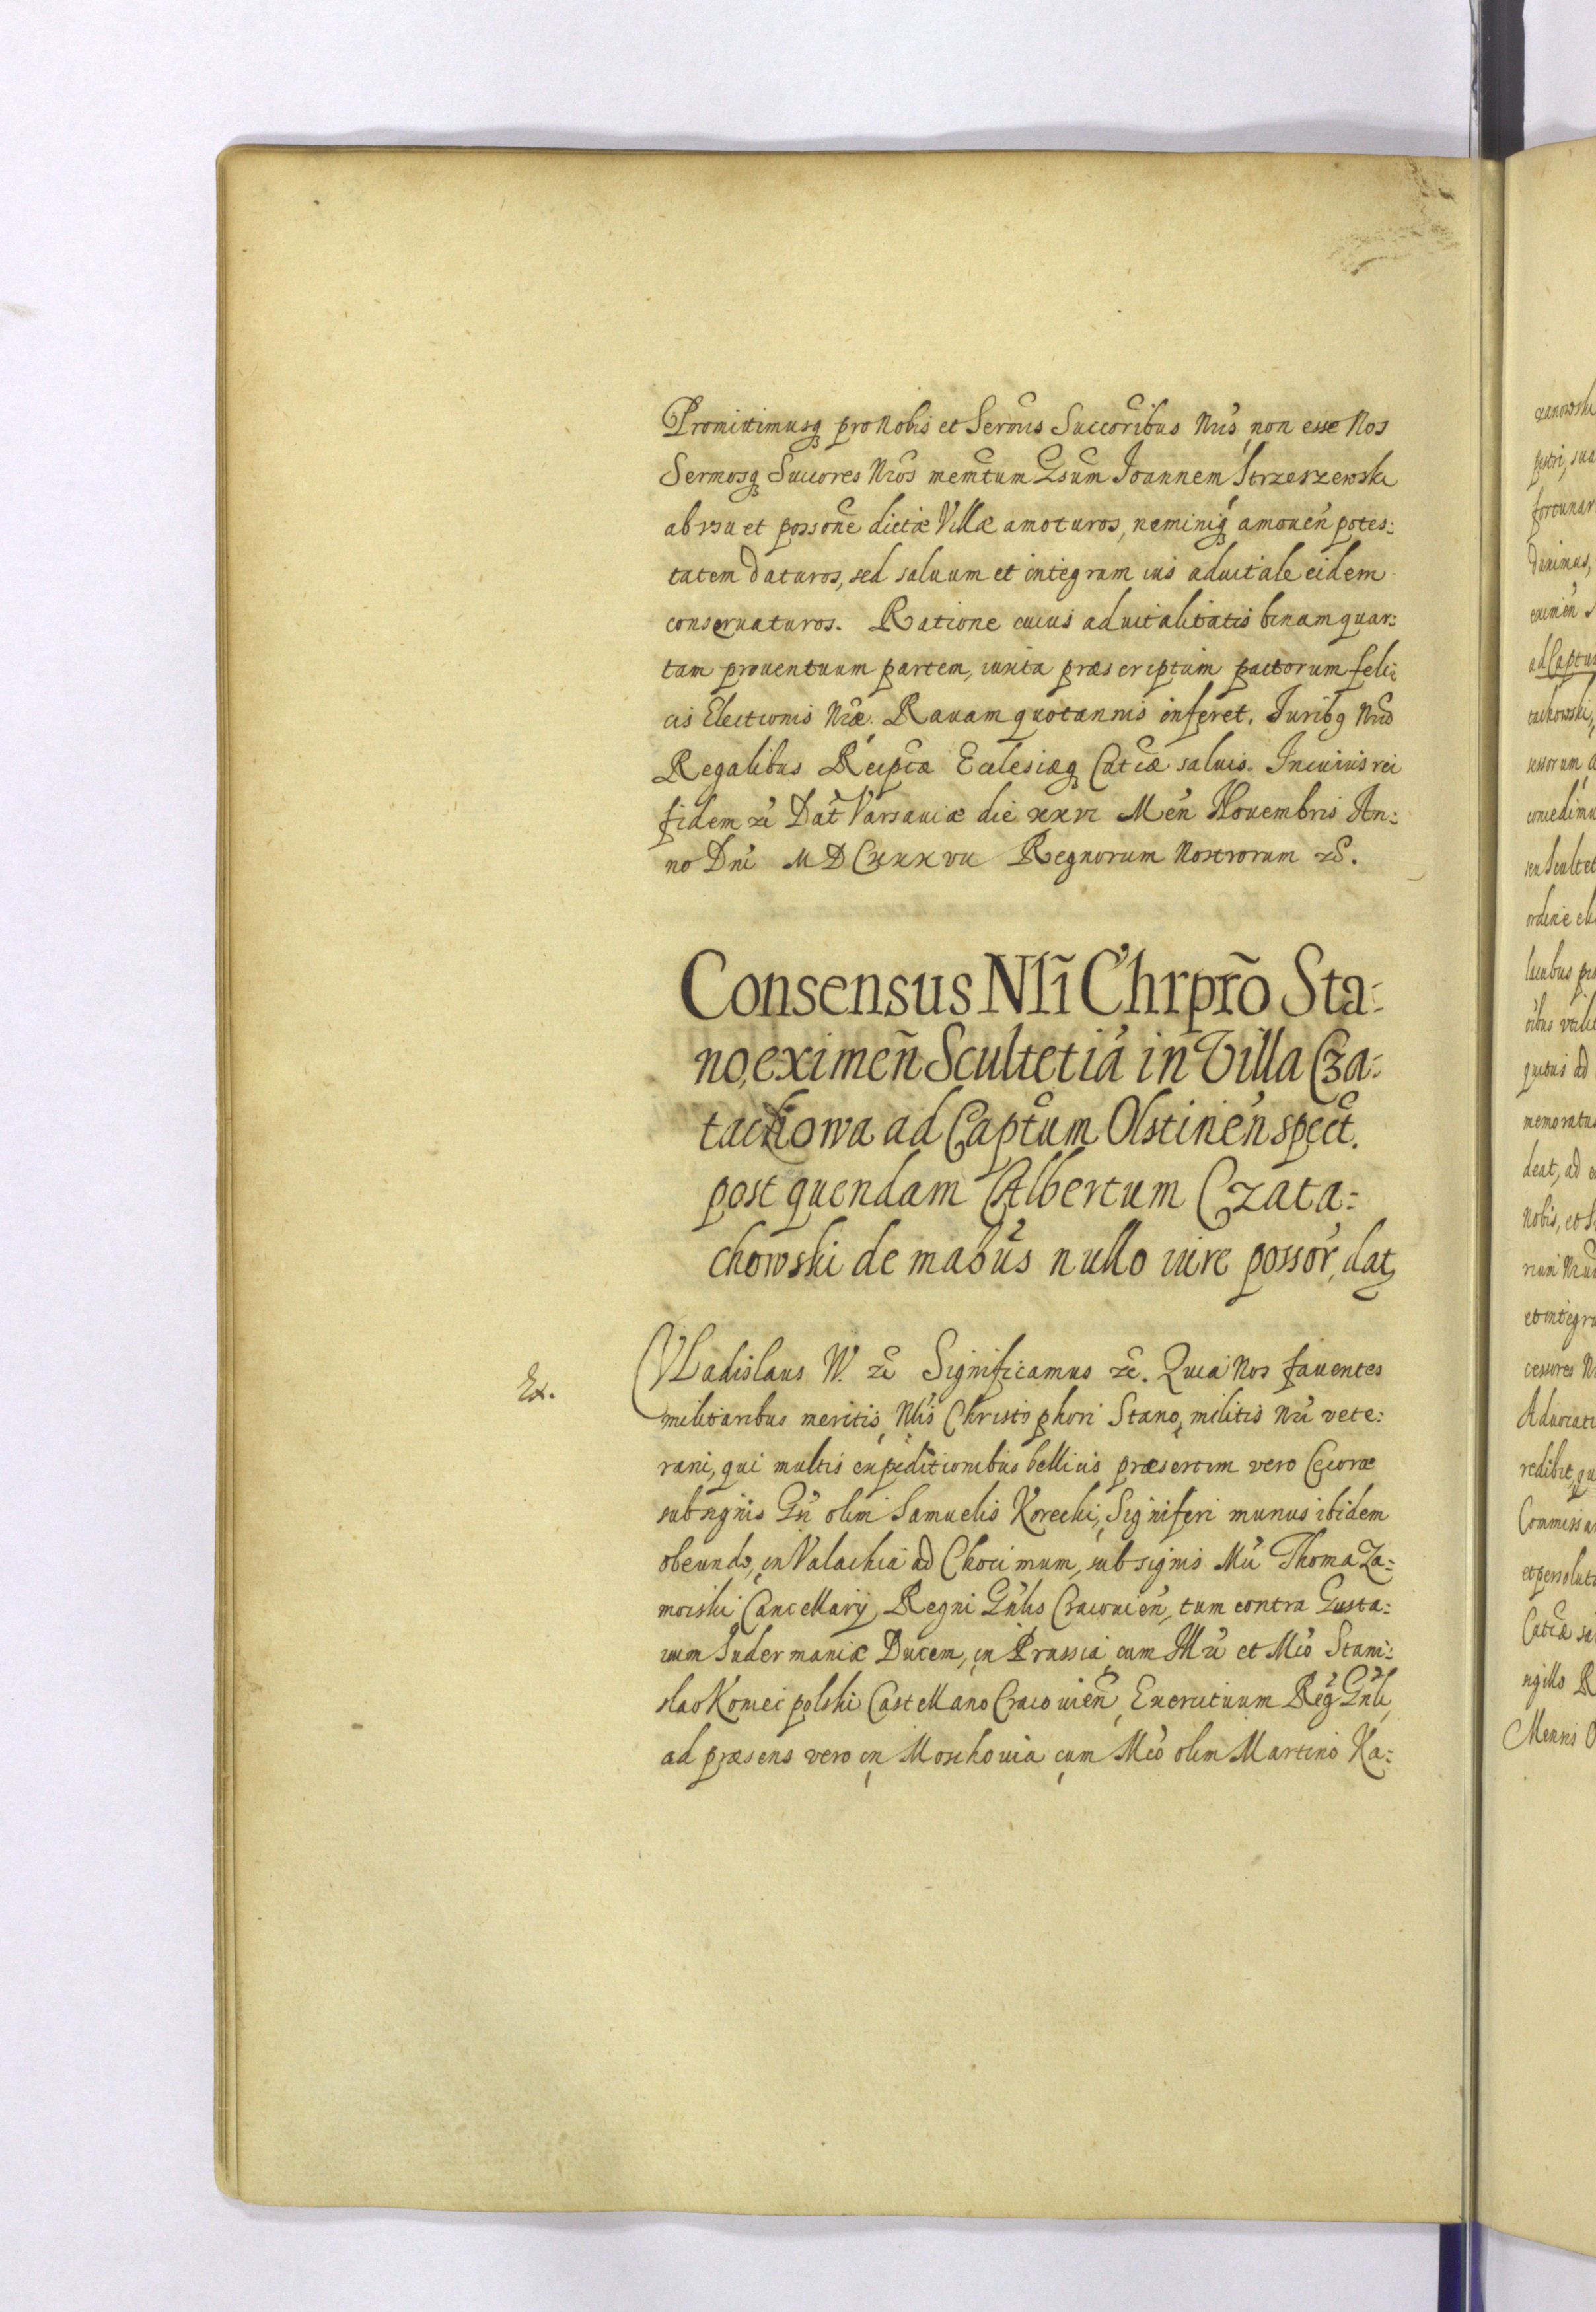 Promittimusq pro Nobis et Sermis Succoribus Nris, non esse Nos
Sermosq Succores Nros memtum Gsum Joannem Strzeszewski
ab vsu et possone dictæ Villæ amoturos, neminiq amouen potes:
tatem daturos, sed saluum et integrum ius aduitale eidem
conseruaturos. Ratione cuius aduitalitatis binam quar:
tam prouentuum partem, iuxta præscriptum pactorum feli:
cis Electionis Nræ. Rauam quotannis inferet. Juribq Nris
Regalibus Reipcæ Ecclesiæq Catcæ saluis. In cuius rei
fidem etc Dat Varsauiæ die xxvi Men Nouembris An:
no Dni MDCxxxvii Regnorum Nostrorum etc.
Consensus Nli Chrpro Sta:
no, eximen Scultetiã in Villa Cza:
tachowa ad Captum Olstinen spect.
post quendam Albertum Czata:
chowski de mabus nullo iure possor, dat,
Ex.
Vladislaus IV. etc Significamus etc. Quia Nos fauentes
militaribus meritis, Nlis Christophori Stano, militis Nri vete:
rani, qui multis expeditionibus bellicis præsertim vero Cecoræ
sub signis Gn olim Samuelis Korecki, Signiferi munus ibidem
obeundo, in Valachia ad Chocimum, sub signis Mci Thoma Za:
moiski Cancellarij Regni Gnlis Cracouien, tum contra Gusta:
uum Sudermaniæ Ducem, in Prussia, cum Mci et Mco Stani:
slao Koniecpolski Castellano Cracouien, Exercituum Reg Gnli,
ad præsens vero in Moschouia cum Mco olim Martino Ka: